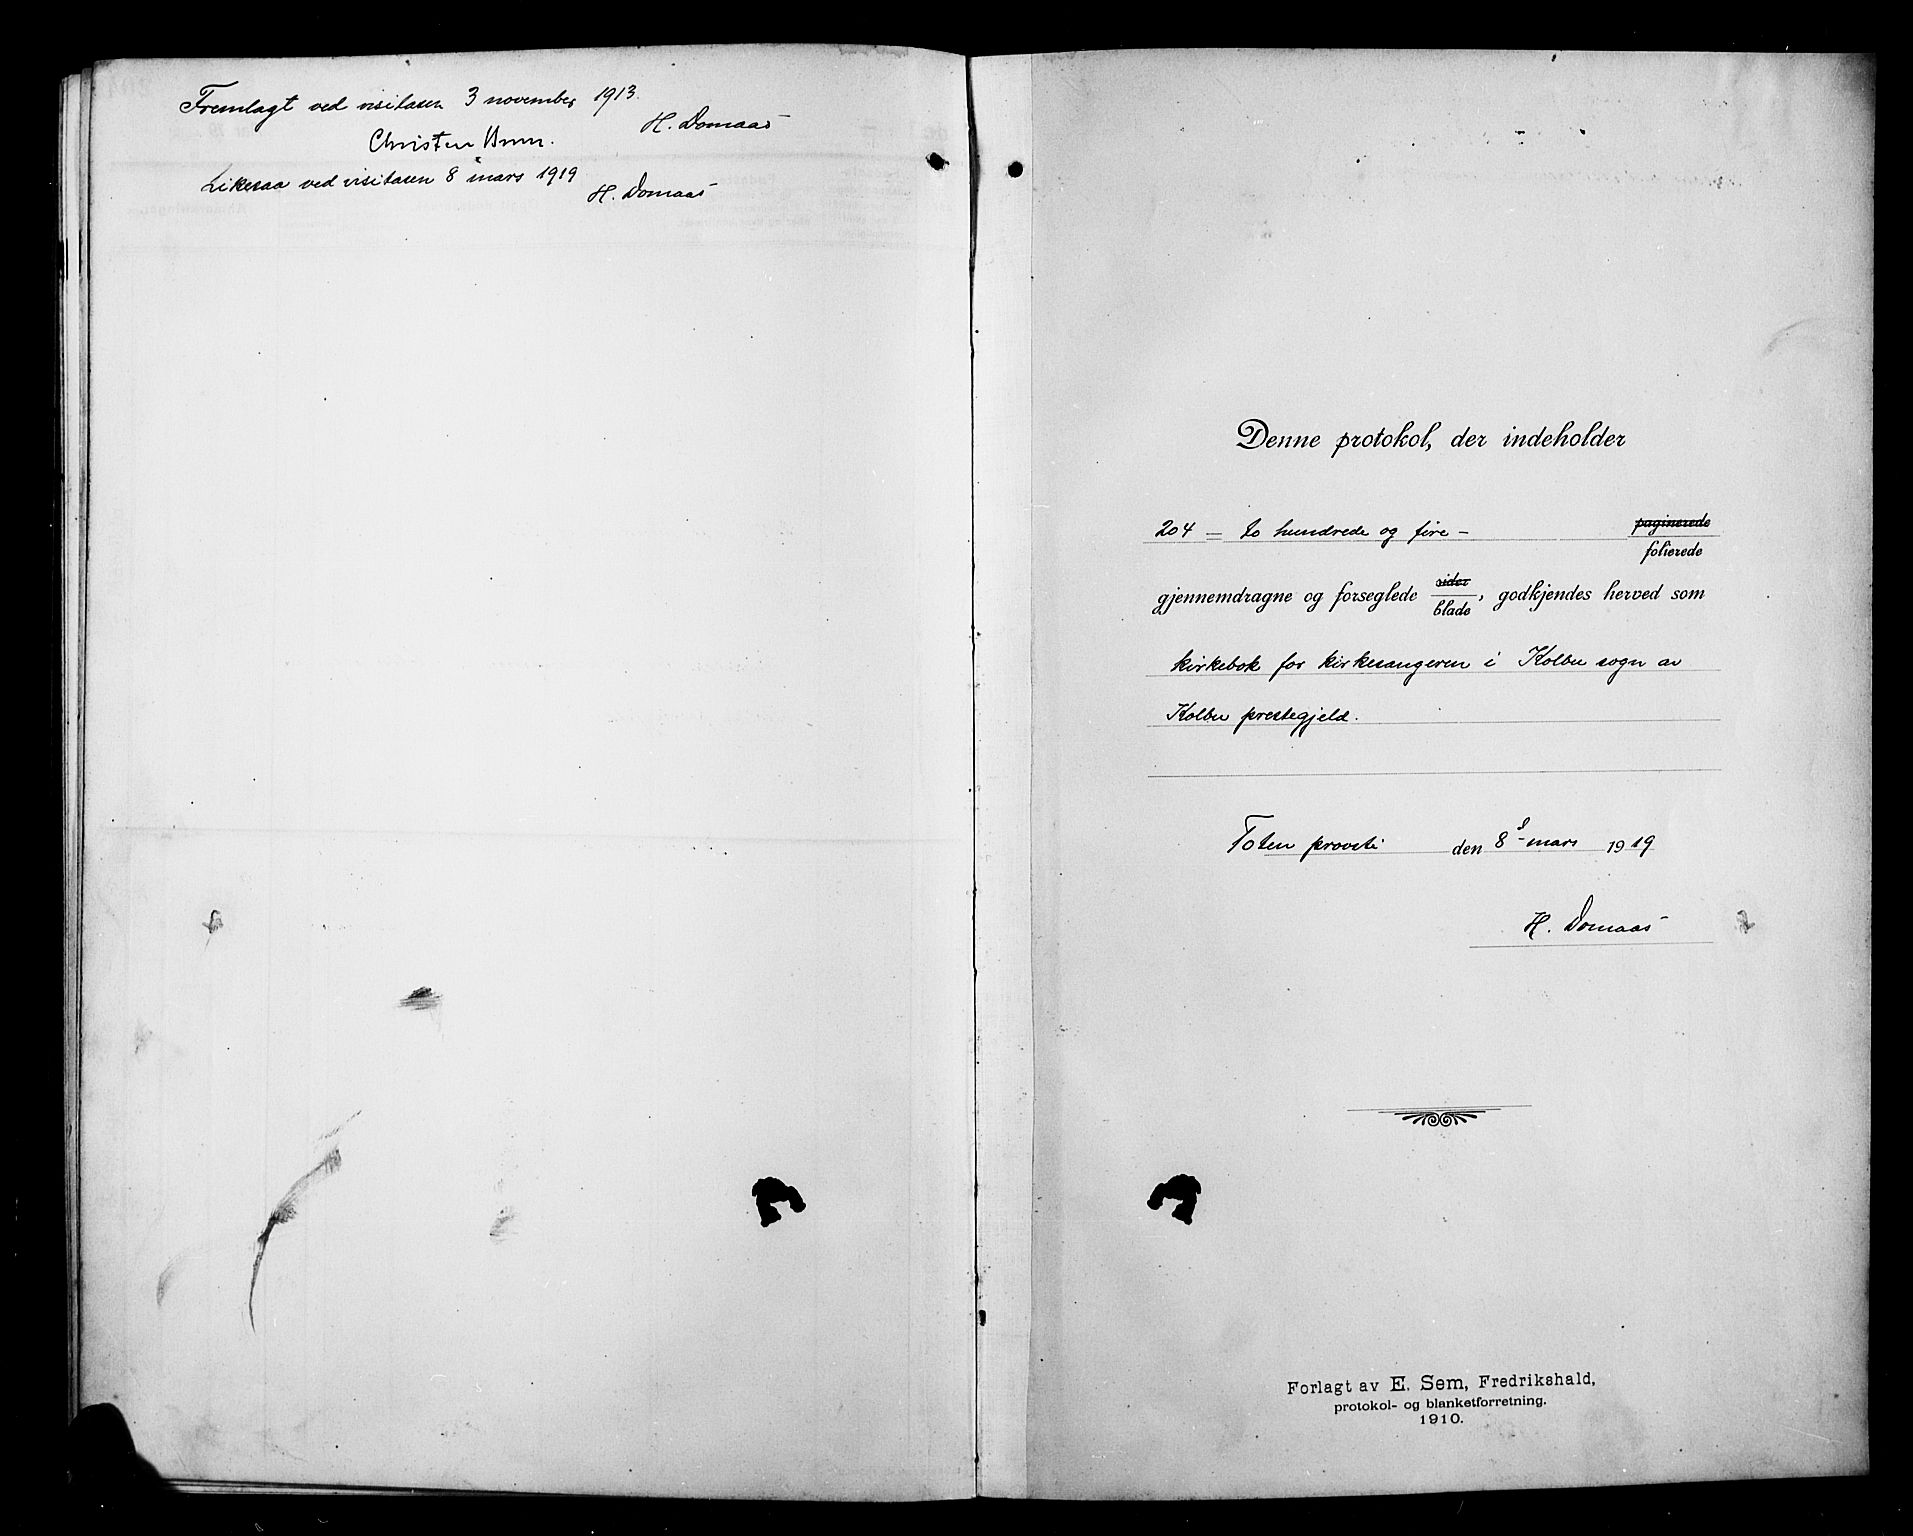 Fremlagt ved visitasen 3 november 1913.
H. Domaas
Christen Brun.
Likesaa ved visitasen 8 mars 1919
H. Domaas
Denne protokol, der indeholder
204 = to hundrede og fire - paginerede
folierede
gjennemdragne og forseglede sider blade, godkjendes herved som
kirkebok for kirkesangeren i Kolbu sogn av
Kolbu prestegjeld.
Toten provsti den 8 mars 1919
H. Domaas
Forlagt av E. Sem, Fredrikshald,
protokol- og blanketforretning.
1910.